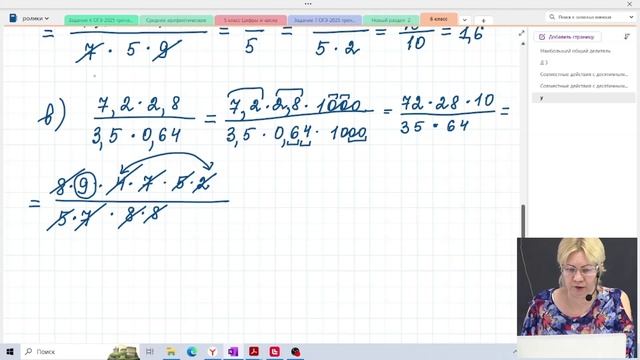 ролики
Задание 4 ОГЭ-2025 трени...
Среднее арифметическое
5 класс Цифры и числа
Задание 1 ОГЭ-2025 трен...
Новый раздел 2
6 класс
Поиск в записных книжках
Добавить страницу
Наибольший общий делитель
Д З
Совместные действия с десятичным...
Совместные действия с десятичным...
у
= / 7 · 5 · 9 = / 5 = / 5 · 2 = / 10 = 1,6
в) 7,2 · 2,8 / 3,5 · 0,64 = 7,2 · 2,8 · 1000 / 3,5 · 0,64 · 1000 = 72 · 28 · 10 / 35 · 64 =
= 8 · 9 · 4 · 7 · 5 · 2 / 5 · 7 · 8 · 8
Поиск